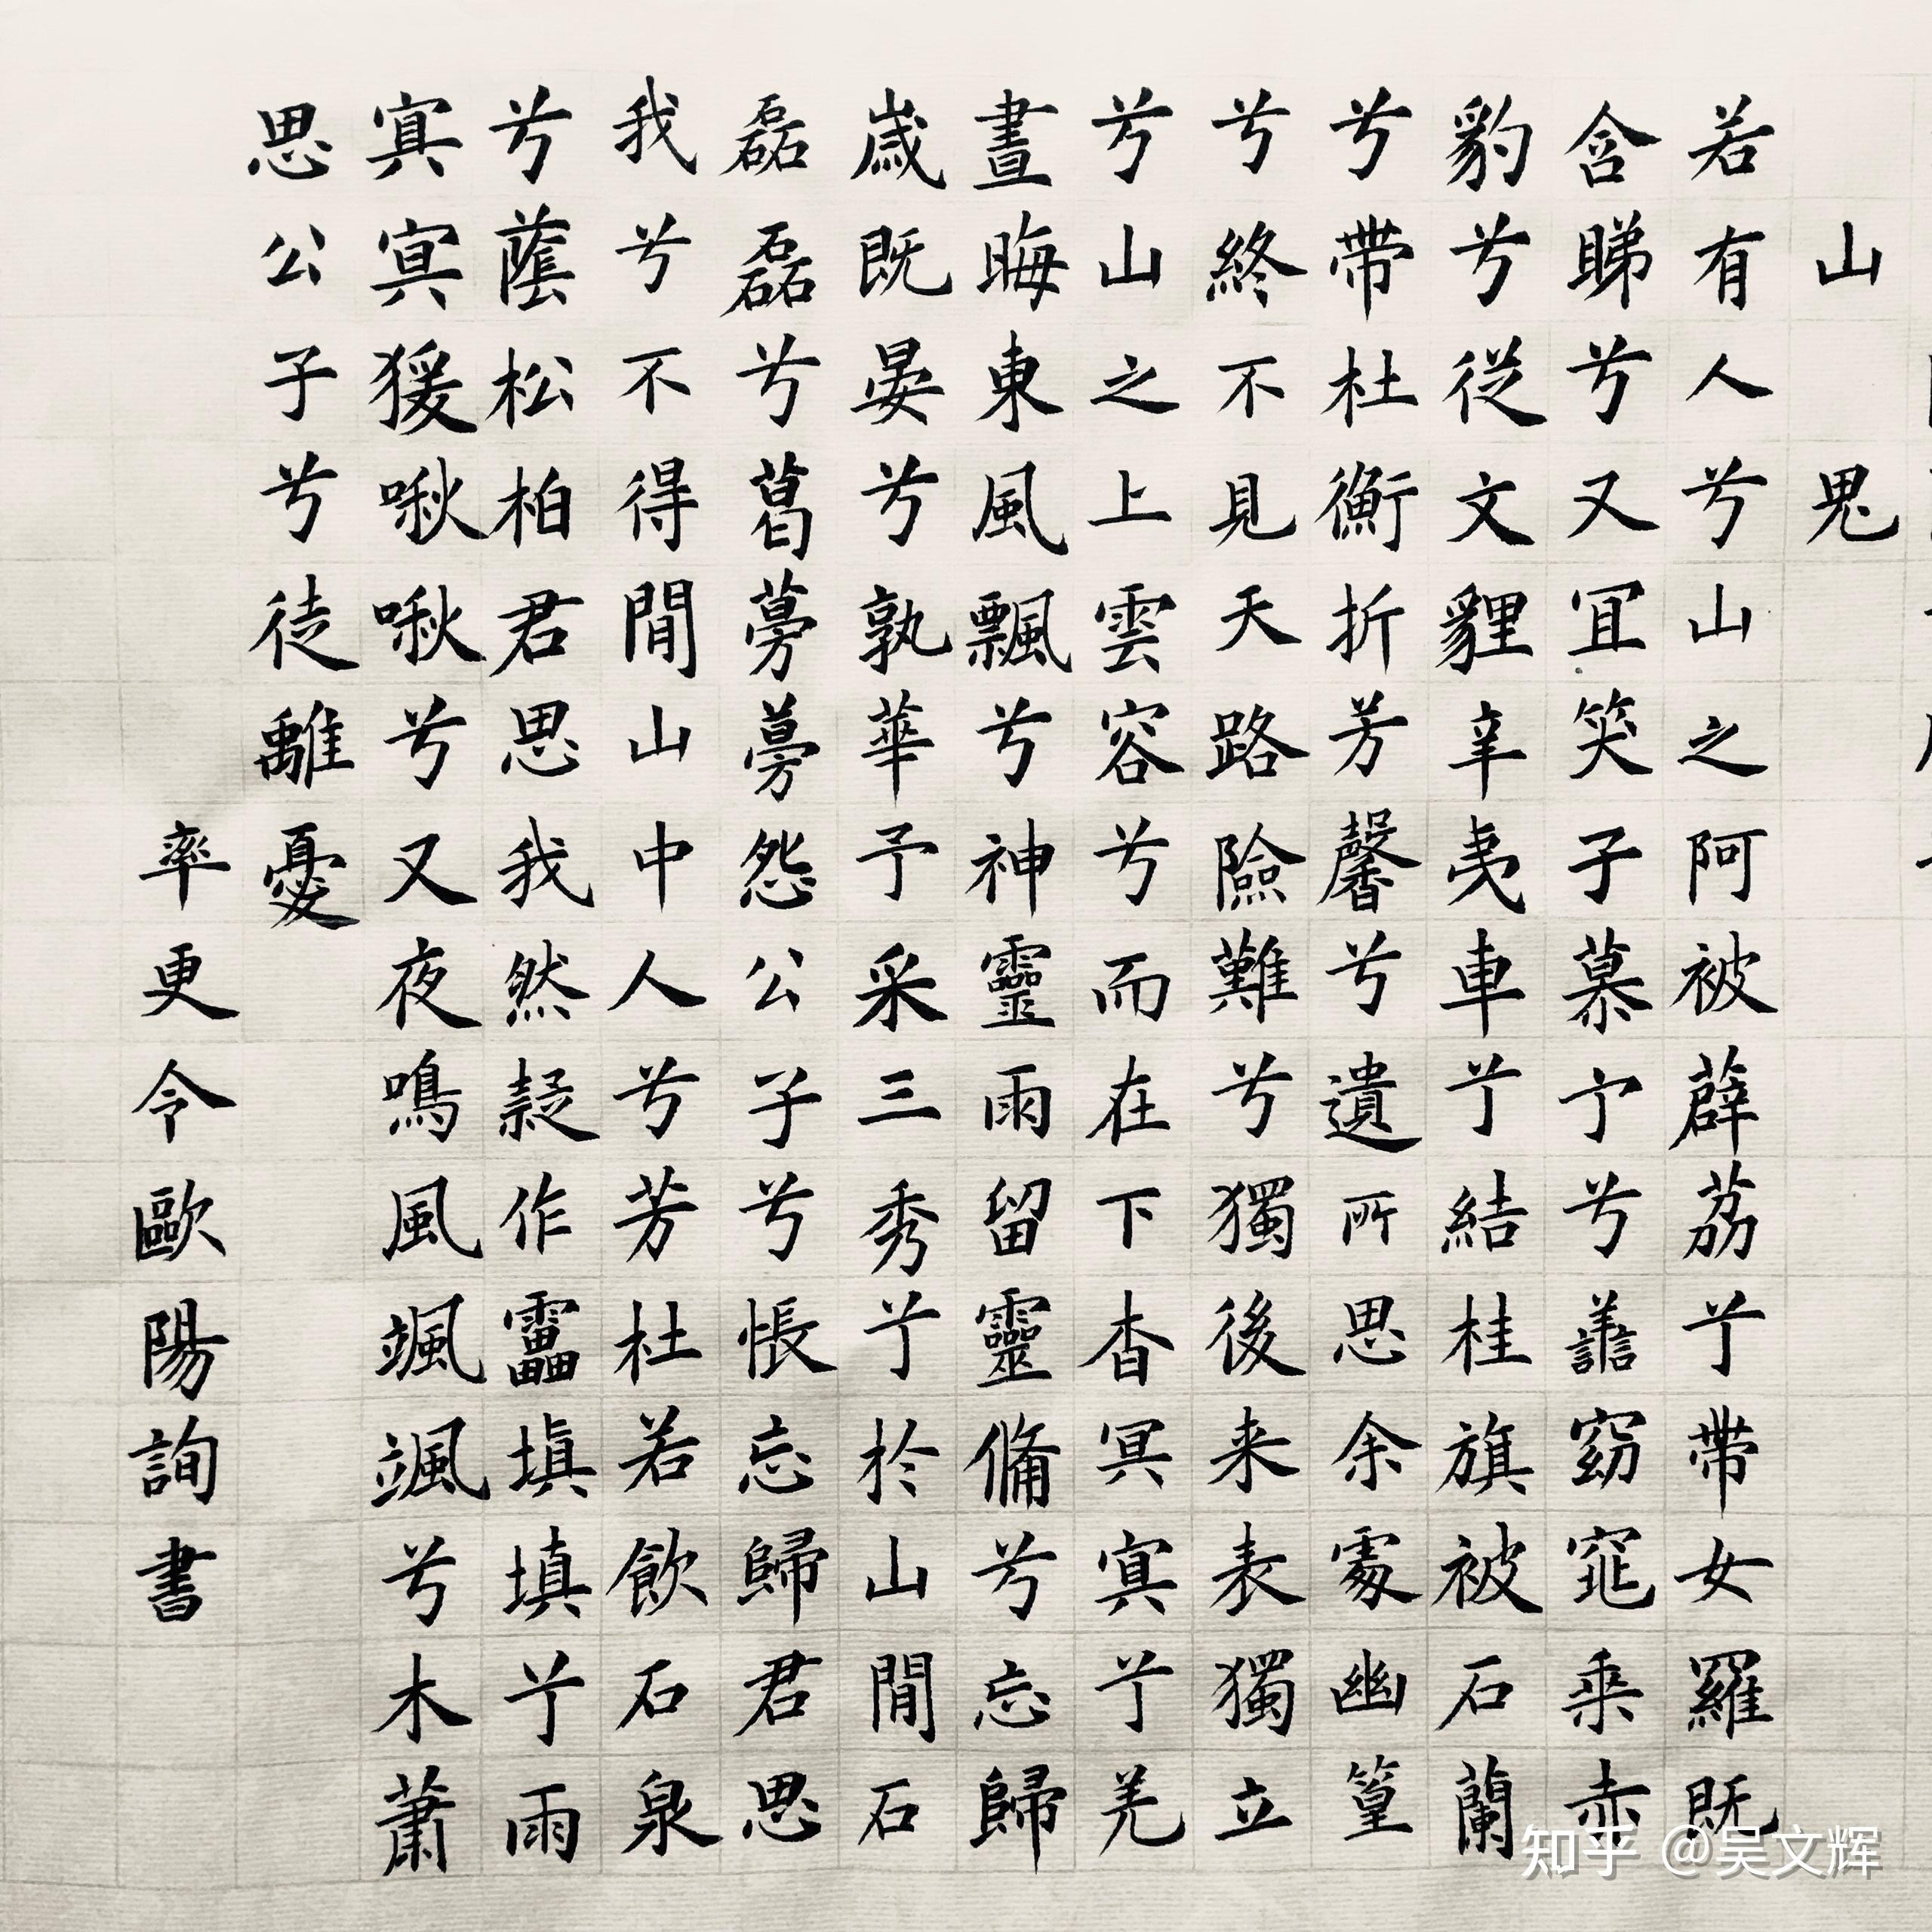 山鬼
若有人兮山之阿被薜荔兮帶女羅既
含睇兮又冝笑子慕予兮譱窈窕乗赤
豹兮從文貍辛夷車兮結桂旗被石蘭
兮帶杜衡折芳馨兮遺所思余處幽篁
兮終不見天路險難兮獨後来表獨立
兮山之上雲容兮而在下杳冥冥兮羌
晝晦東風飄兮神靈雨留靈脩兮忘歸
歲既晏兮孰華予采三秀兮於山閒石
磊磊兮葛蔓蔓怨公子兮悵忘歸君思
我兮不得閒山中人兮芳杜若飲石泉
兮蔭松柏君思我然疑作靁填填兮雨
冥冥猨啾啾兮又夜鳴風颯颯兮木蕭
思公子兮徒離憂
率更令歐陽詢書
知乎 @吴文辉